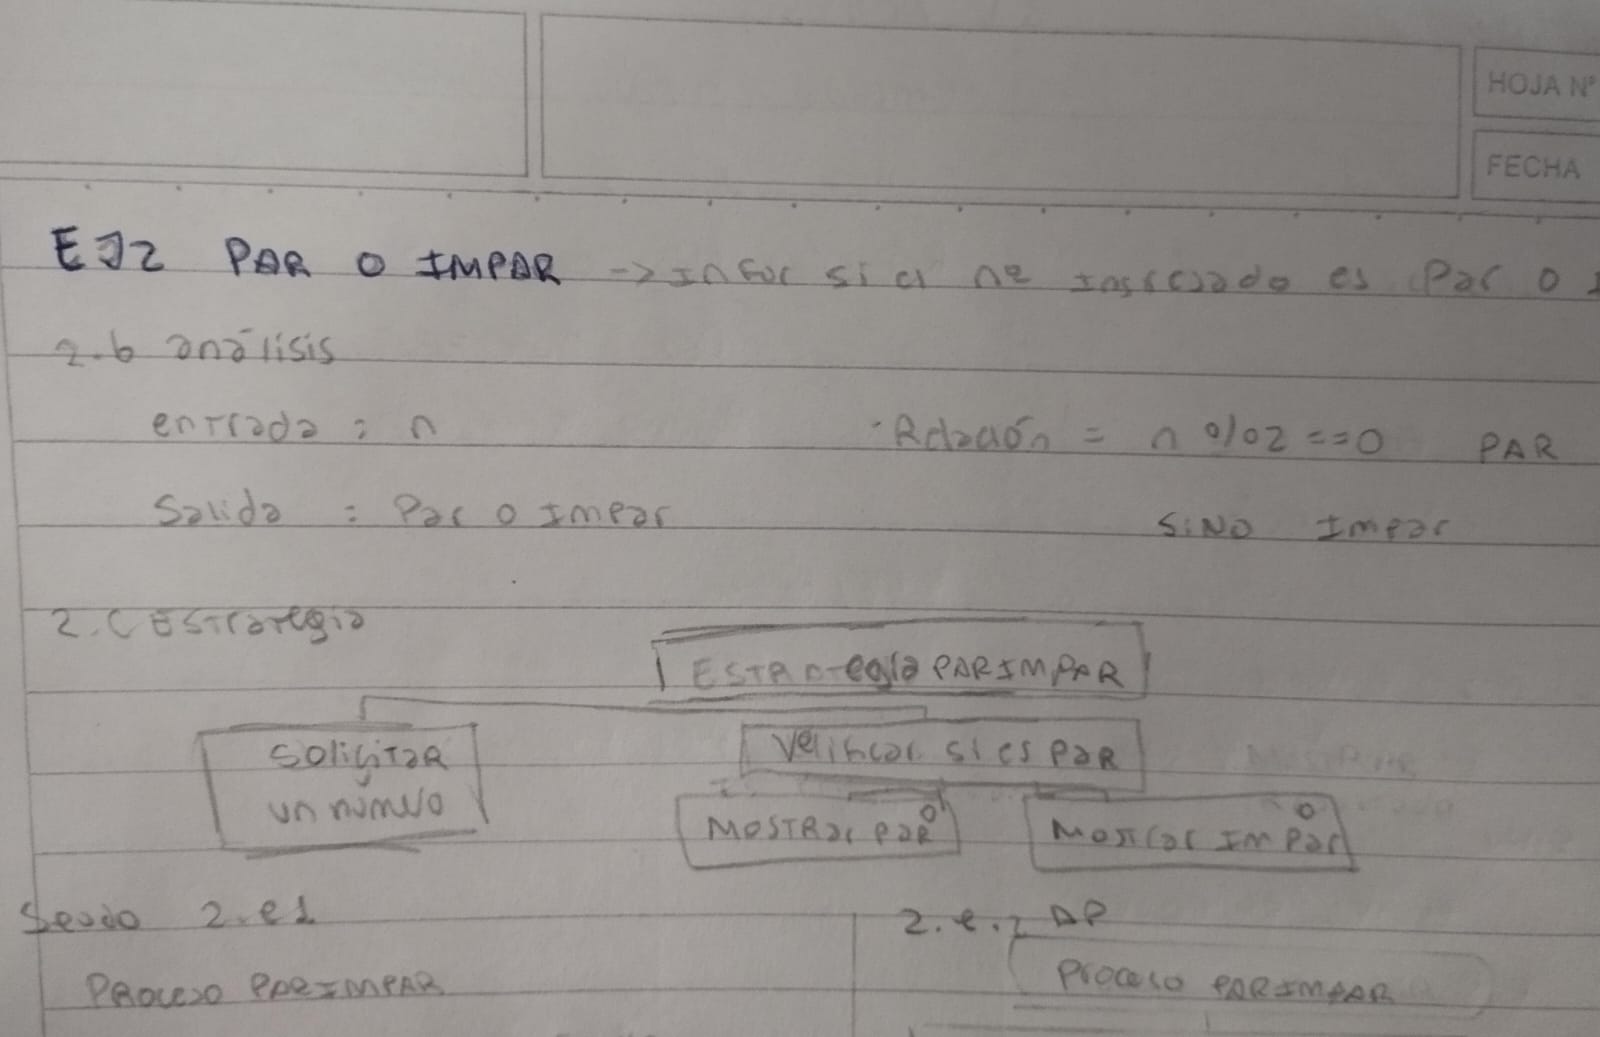 HOJA Nº
FECHA
EJ2 PAR O IMPAR -> Infor si el nº Ingresado es Par o I
2.b análisis
entrada : n
Relación = n %2 ==0 PAR
Salida : Par o Impar
SINO Impar
2.C Estrategia
Estrategia PARIMPAR
Solicitar
un número
Verificar si es PAR
MOSTRar PaR
o
Mostrar Impar
o
Seudo 2.e1
2.e.2 DP
PROCESO PARIMPAR
Proceso PARIMPAR